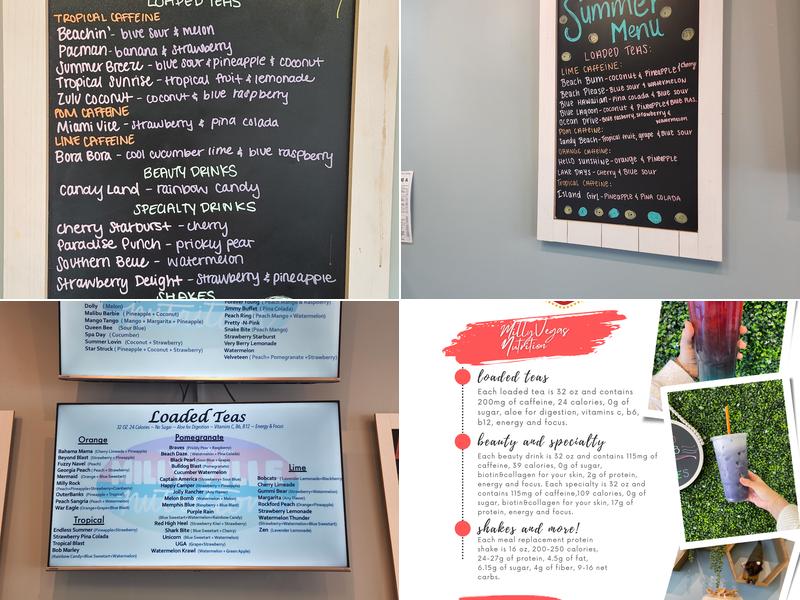 LOADED TEAS
TROPICAL CAFFEINE
Beachin' - blue sour & melon
Pacman - banana & strawberry
Summer Breeze - blue sour & pineapple & coconut
Tropical Sunrise - tropical fruit & lemonade
Zulu Coconut - coconut & blue raspberry
POM CAFFEINE
Miami Vice - strawberry & pina colada
LIME CAFFEINE
Bora Bora - cool cucumber lime & blue raspberry
BEAUTY DRINKS
Candy Land - rainbow candy
SPECIALTY DRINKS
Cherry Starburst - cherry
Paradise Punch - prickly pear
Southern Belle - watermelon
Strawberry Delight - strawberry & pineapple
SHAKES
Summer
Menu
LOADED TEAS:
LIME CAFFEINE:
Beach Bum - coconut & Pineapple & Cherry
Beach Please - Blue sour & watermelon
Blue Hawaiian - Pina colada & Blue sour
Blue Lagoon - coconut & Pineapple & Blue Ras.
Ocean Drive - Blue rasberry, strawberry & watermelon
Pom Caffeine:
Sandy Beach - Tropical fruit, grape & Blue sour
Orange Caffeine:
Hello Sunshine - orange & Pineapple
Lake Days - Cherry & Blue sour
Tropical Caffeine:
Island Girl - Pineapple & Pina Colada
Dolly ( Melon)
Malibu Barbie ( Pineapple + Coconut)
Mango Tango ( Mango + Margarita + Pineapple)
Queen Bee (Sour Blue)
Spa Day ( Cucumber)
Summer Lovin (Coconut + Strawberry)
Star Struck ( Pineapple + Coconut + Strawberry)
Forever Young ( Peach Mango & Raspberry)
Jimmy Buffet ( Pina Colada)
Peach Ring ( Peach Mango + Watermelon)
Pretty -N-Pink
Snake Bite (Peach Mango)
Strawberry Starburst
Very Berry Lemonade
Watermelon
Velveteen ( Peach+ Pomegranate +Strawberry)
Loaded Teas
32 OZ, 24 Calories ~ No Sugar ~ Aloe for Digestion ~ Vitamins C, B6, B12 ~ Energy & Focus
Orange
Bahama Mama (Cherry Limeade + Pineapple)
Beyond Blast (Strawberry + Pineapple)
Fuzzy Navel (Peach)
Georgia Peach ( Peach + Strawberry)
Mermaid (Orange + Blue Sweetart)
Milly Rock
OuterBanks (Pineapple + Tropical)
Peach Sangria (Peach + Pomegranate)
War Eagle (Orange+Grape+Blue Sweetart)
Tropical
Endless Summer (Pineapple+Strawberry)
Strawberry Pina Colada
Tropical Blast
Bob Marley
(Rainbow Candy+Blue Sweetart+Watermelon)
Pomegranate
Braves (Prickly Pear + Raspberry)
Beach Daze (Watermelon + Pina Colada)
Black Pearl (Sour Blue + Grape)
Bulldog Blast (Pomegranate)
Cucumber Watermelon
Captain America (Strawberry + Blue Sweetart)
Happy Camper (Strawberry + Pineapple)
Jolly Rancher (Any Flavor)
Melon Bomb (Watermelon + Melon)
Memphis Blue (Raspberry + Blue Sweetart)
Purple Rain
(Blue Sweetart+Watermelon+Rainbow Candy)
Red High Heel (Strawberry Kiwi + Strawberry)
Shark Bite ( Blue Sweetart + Cherry)
Unicorn (Blue Sweetart + Watermelon)
UGA (Grape+Strawberry)
Watermelon Krawl (Watermelon + Green Apple)
Lime
Bobcats (Lavender Lemonade + Blackberry)
Cherry Limeade
Gummi Bear (Strawberry+Watermelon)
Margarita (Any Flavor)
Rockford Peach (Orange+Pineapple)
Strawberry Lemonade
Watermelon Thunder
(Strawberry+Watermelon+Blue Sweetart)
Zen (Lavender Lemonade)
MillyVegas
Nutrition
loaded teas
Each loaded tea is 32 oz and contains
200mg of caffeine, 24 calories, 0g of
sugar, aloe for digestion, vitamins c, b6,
b12, energy and focus.
beauty and specialty
Each beauty drink is 32 oz and contains 115mg of
caffeine, 39 calories, 0g of sugar,
biotin&collagen for your skin, 2g of protein,
energy and focus. Each specialty is 32 oz and
contains 115mg of caffeine,109 calories, 0g of
sugar, biotin&collagen for your skin, 17g of
protein, energy and focus.
shakes and more!
Each meal replacement protein
shake is 16 oz, 200-250 calories,
24-27g of protein, 4.5g of fat,
6.15g of sugar, 4g of fiber, 9-16 net
carbs.